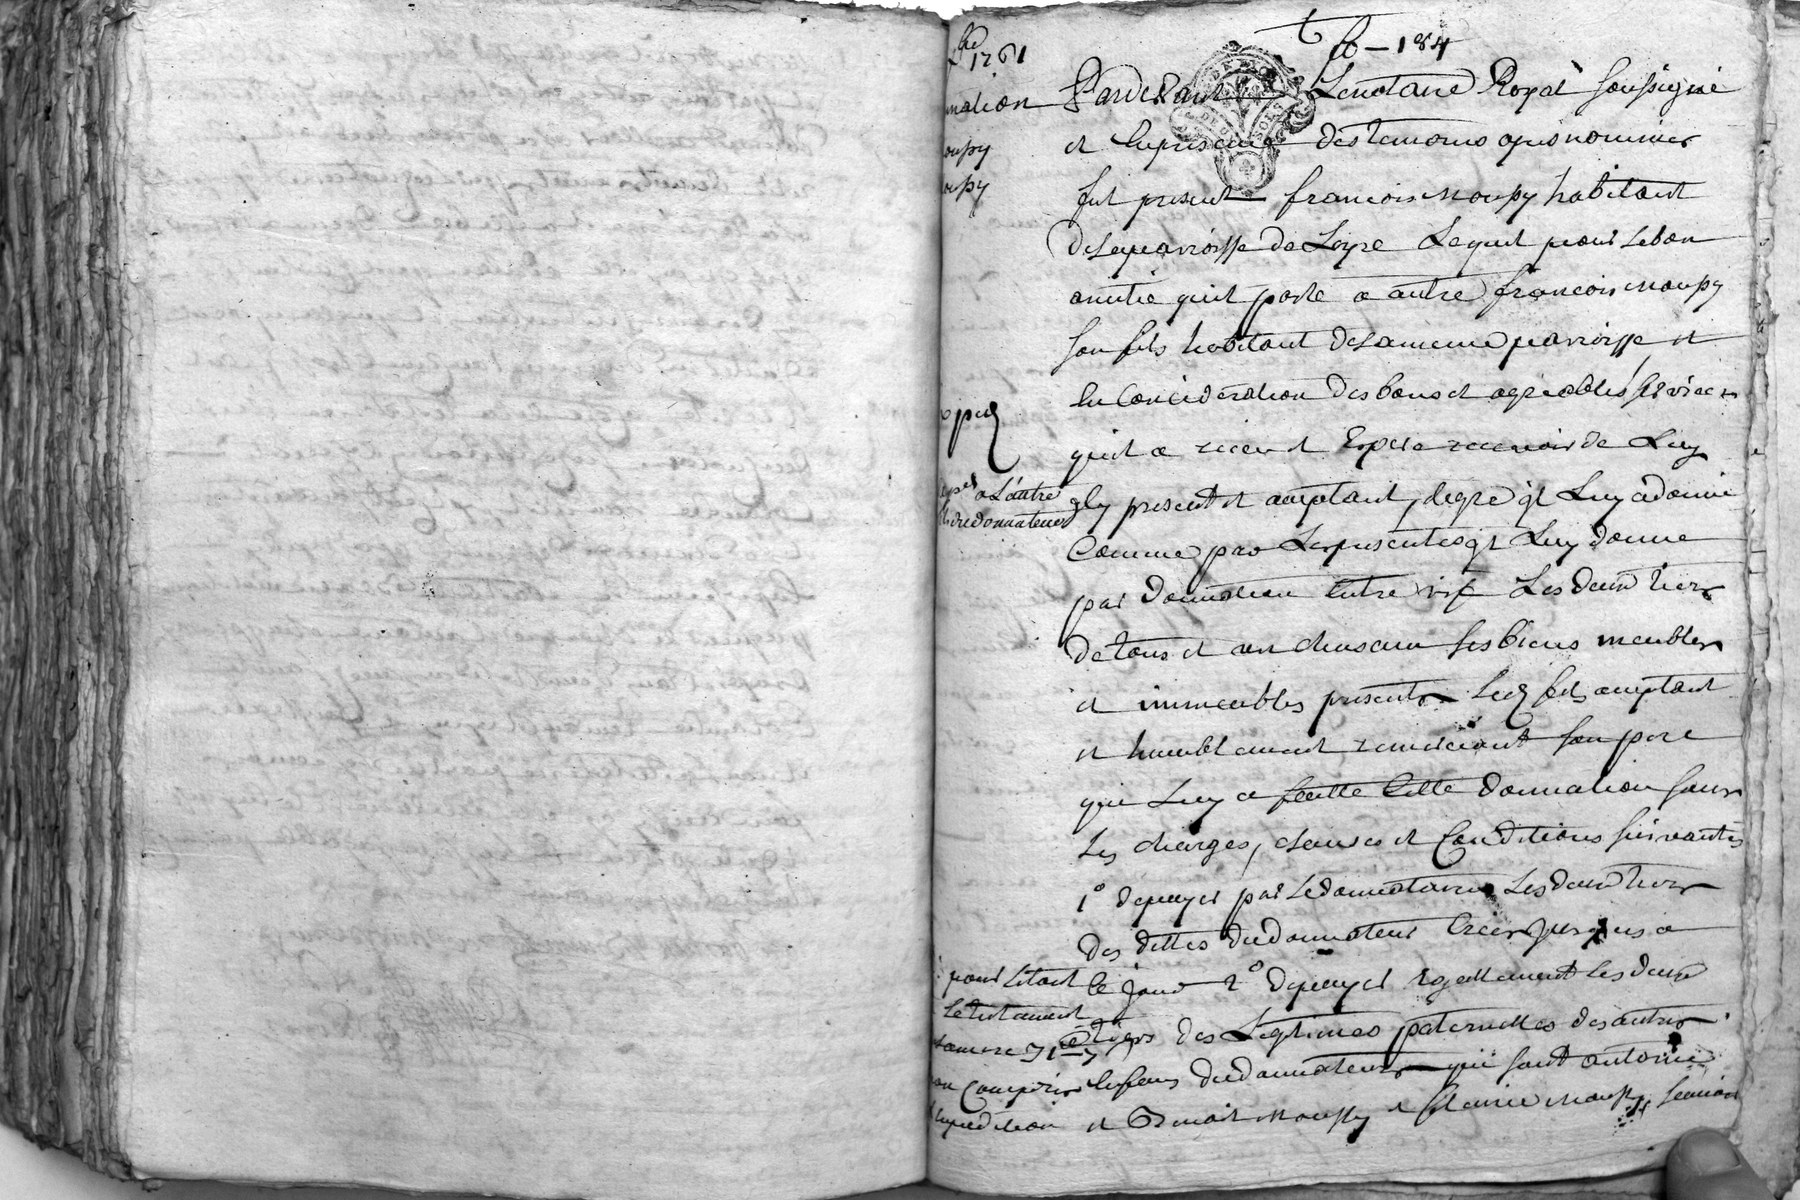 1761
fo - 184
nation
oupy
oupy
Pardevant Le notaire Royal soussigné
et en presence des temoins apres nommes
fut present francois Moupy habitant
de la parroisse de Loyre Lequel pour le bon
amitié quil porte a autre francois Moupy
son fils habitant de la meme parroisse et
en Consideration des bons et agreables services
quil a receu et Espere recevoir de Luy
a L'autre
du donnateur
present et aceptant, de gré Luy a donné
Comme par Les presentes Luy donne
par donnation entre vif Les deux tiers
de tous et un chascun ses biens meubles
et immeubles presents Led fils aceptant
et humblement remerciant son pere
que Luy a faitte Cette donnation sous
Les charges, clauses et Conditions suivantes
1° de payer par Le donnataire Les deux tiers
des dettes du donnateur Crées jusques a
ce jour 2° de payer Egallement les deux
tiers des Legitimes paternelles des autres
enfans du donnateur qui sont antoine
et Benoit Moupy et
pour Letant
Le testament
on Compris
Expedition